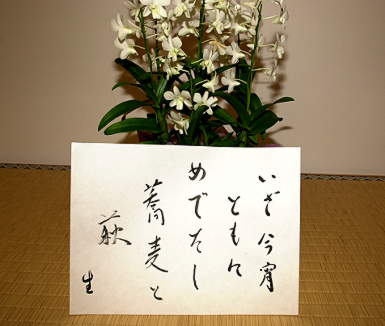 いざ今宵
ともに
めでたし
蕎麦と
萩
生